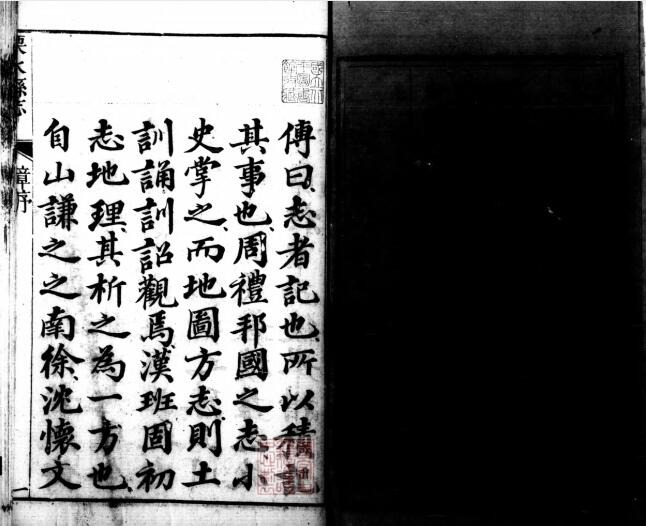 傅曰志者記也所以積記
其事也周禮邦國之志小
史掌之而地圖方志則土
訓誦訓詔觀焉漢班固初
志地理其析之為一方也
自山謙之之南徐沈懷文
水縣志
序